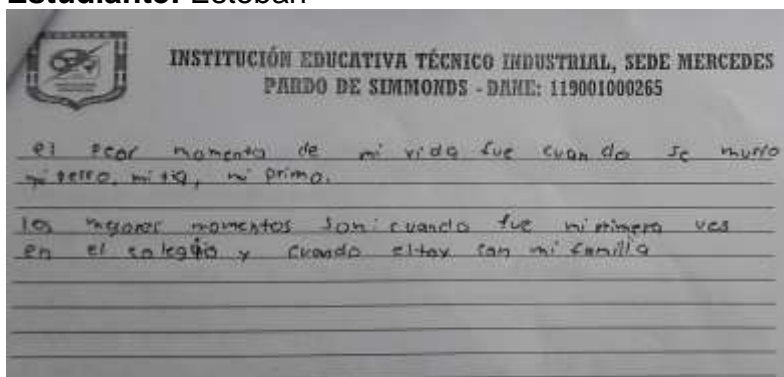 Estudiante: Esteban
INSTITUCIÓN EDUCATIVA TÉCNICO INDUSTRIAL, SEDE MERCEDES
PARDO DE SIMMONDS - DANE: 119001000265
el peor momento de mi vida fue cuando se murio
mi perro, mi tia, mi primo.
los mejores momentos son: cuando fue mi primera ves
en el colegio y cuando estoy con mi familia